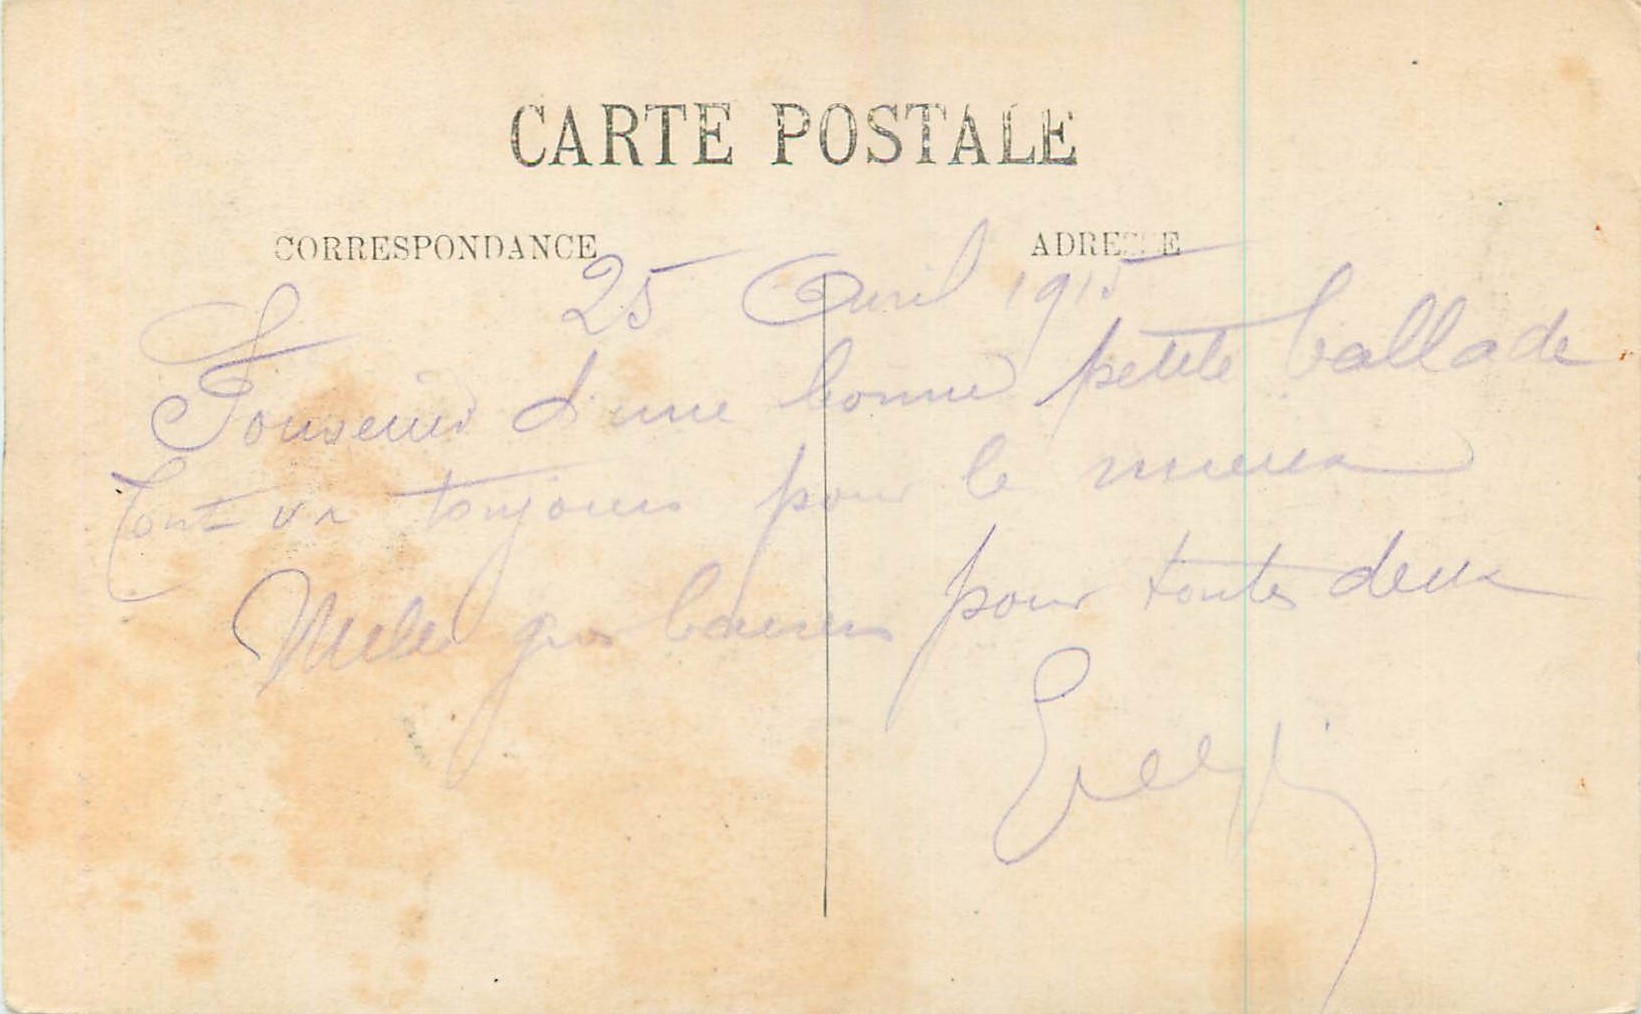 CARTE POSTALE
CORRESPONDANCE
ADRESSE
25 Avril 1915
Souvenir d'une bonne petite ballade
Tout va toujours pour le mieux
Mille gros baisers pour toutes deux